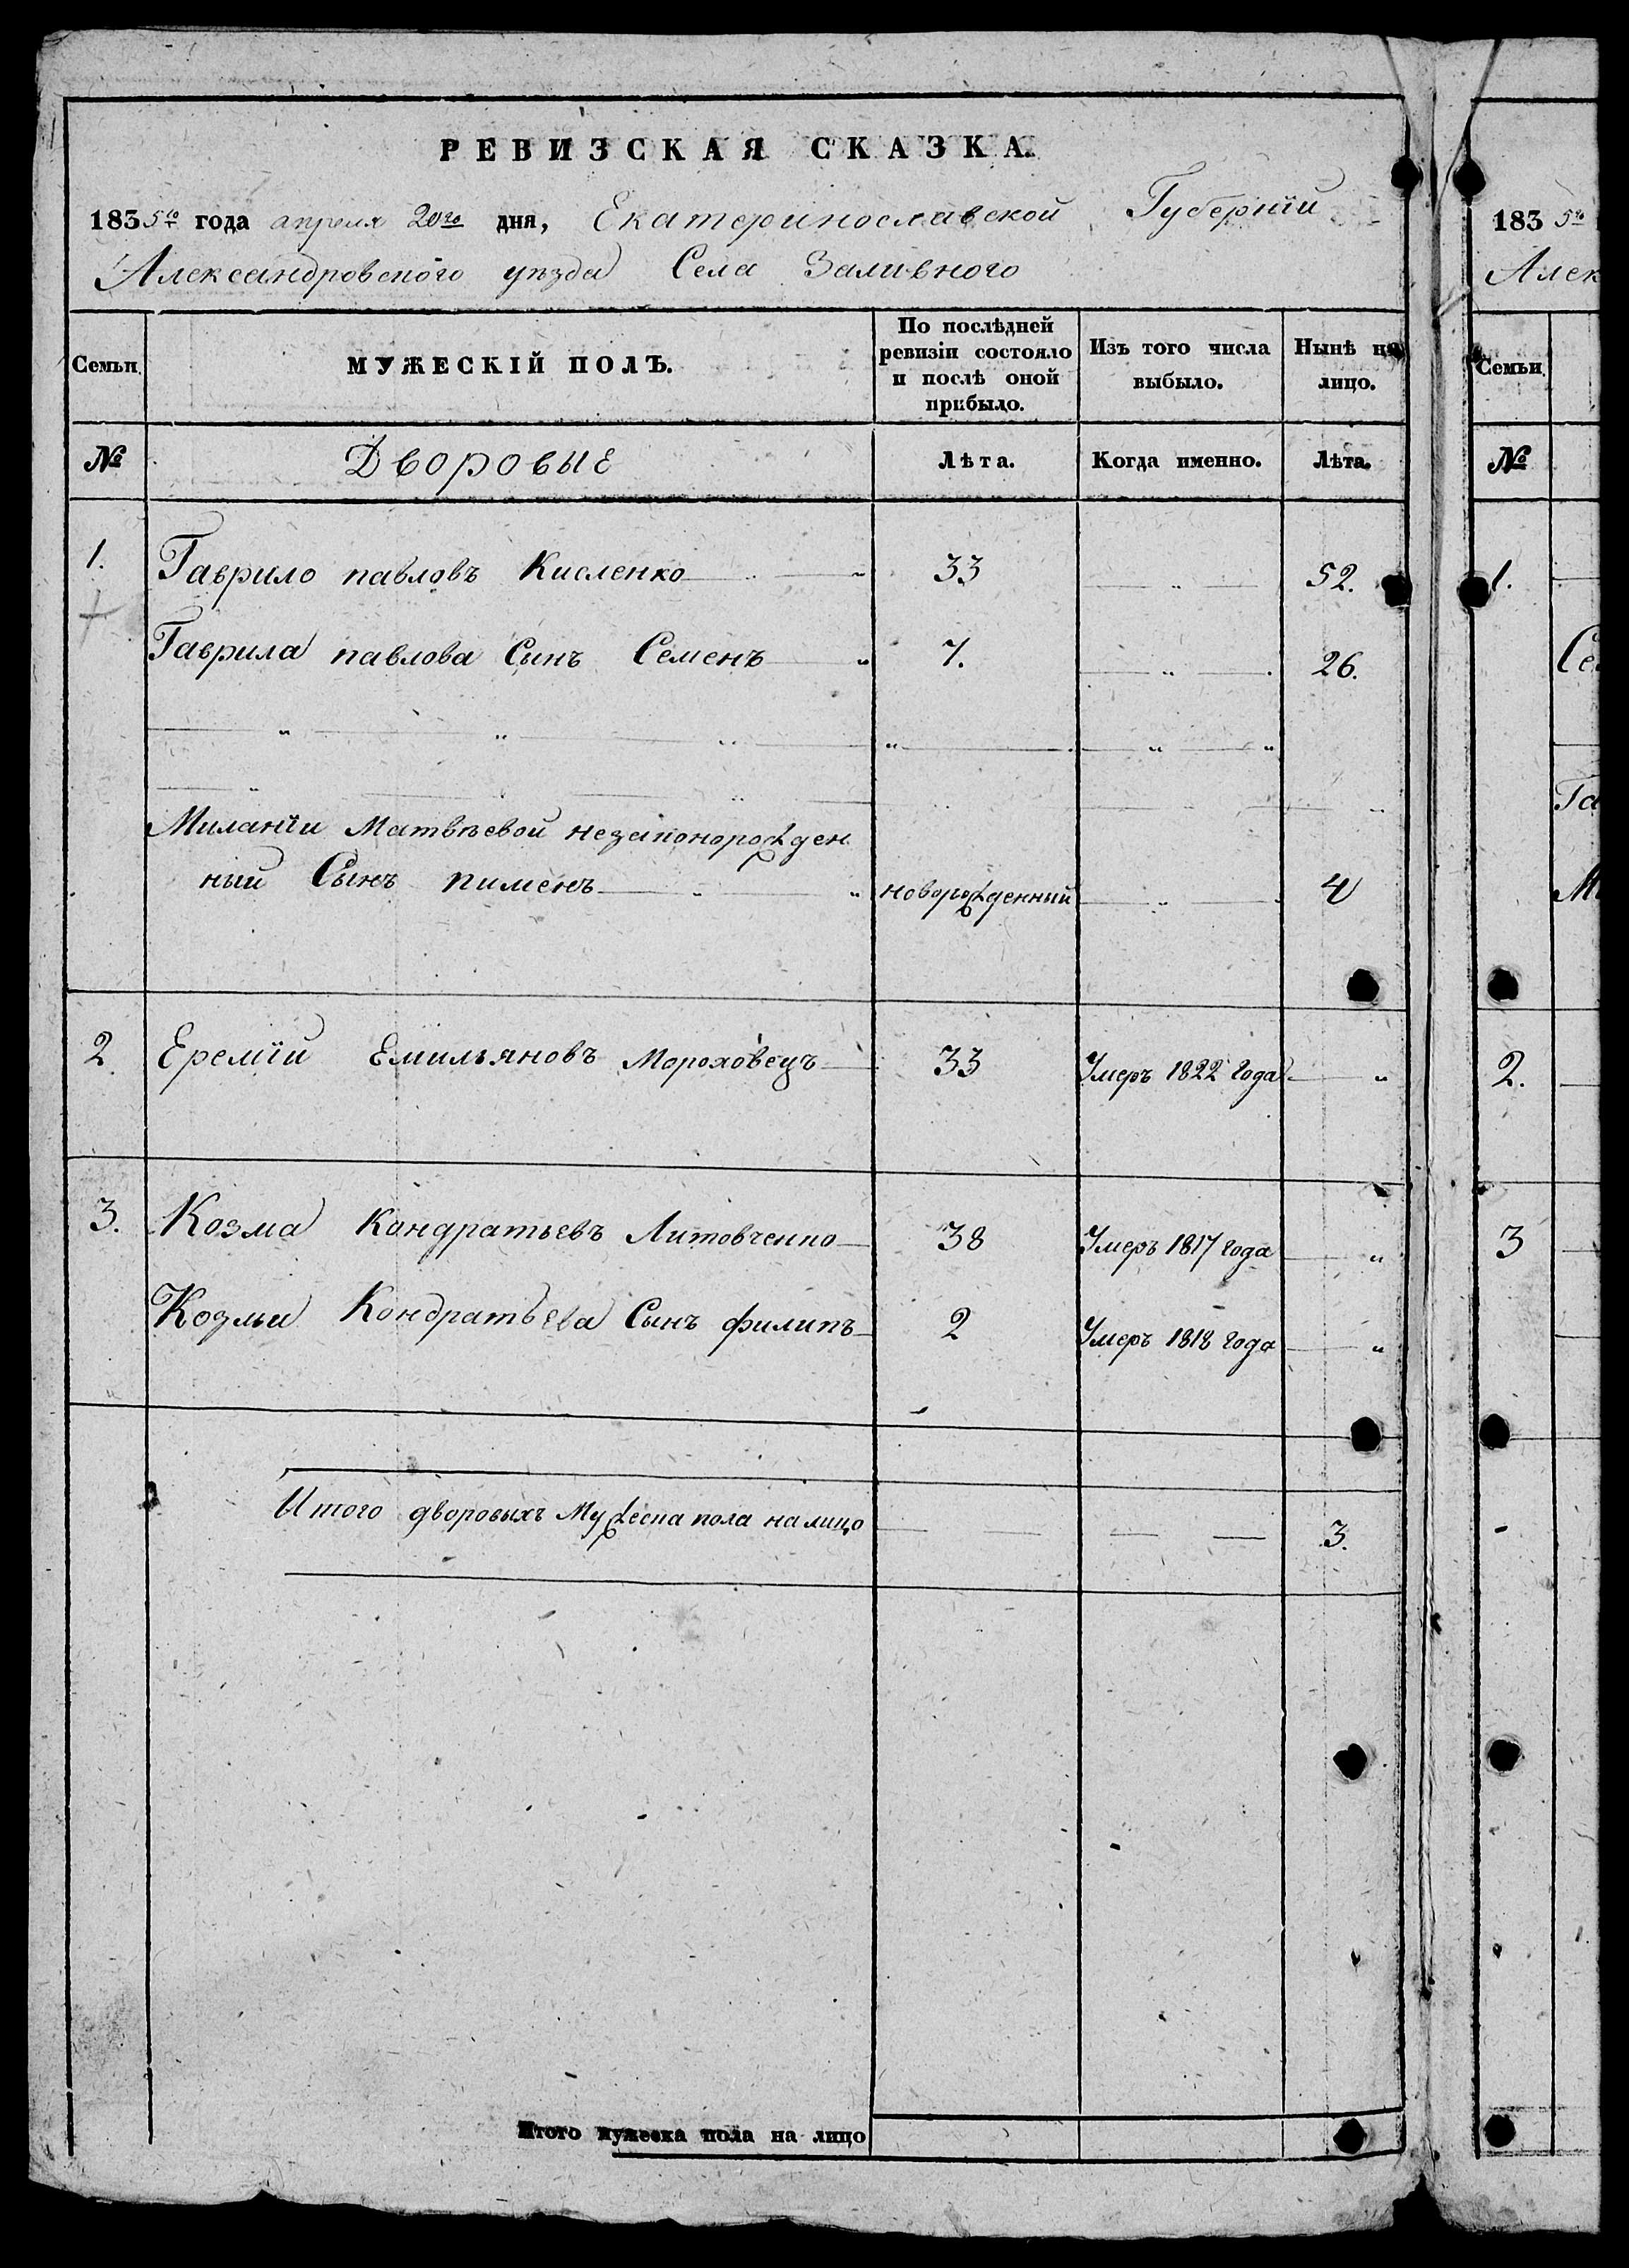 РЕВИЗСКАЯ СКАЗКА.
1835го года апреля 20го дня, Екатеринославской Губернїи
Александровского уезда Села Заливного
Семьи
МУЖЕСКІЙ ПОЛЪ.
По послѣдней ревизіи состояло и послѣ оной прибыло.
Изъ того числа выбыло.
Нынѣ на лицо.
№ Дворовые Лѣта. Когда именно. Лѣта.
1. Гаврило павловъ Кисленко 33 52.
Гаврила павлова Сынъ Семенъ 7. 26.
Миланїи Матвѣевой незаконорожден
ный Сынъ пименъ новорожденный 4
2. Еремїй Емильяновъ Мороховецъ 33 Умеръ 1822 года
3. Козма Кондратьевъ Литовченко 38 Умеръ 1817 года
Козмы Кондратьева Сынъ филипъ 2 Умеръ 1818 года
Итого дворовыхъ Мужеска пола налицо 3.
Итого мужеска пола на лицо
1835го
Алек
Семьи
№
1.
Се
Га
Ми
2.
3